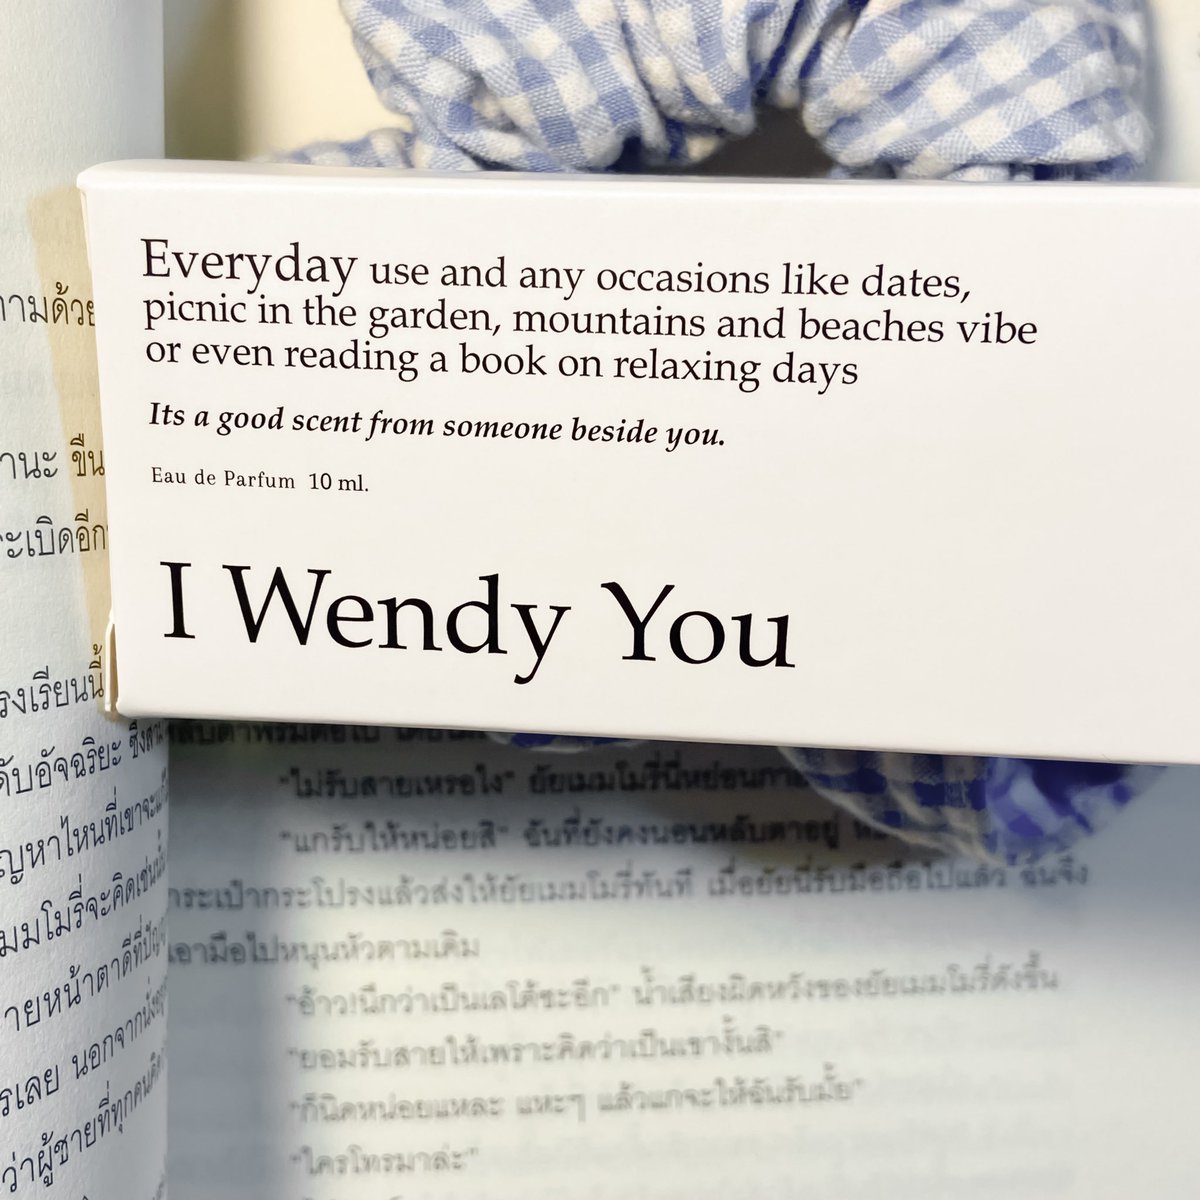 Everyday use and any occasions like dates,
picnic in the garden, mountains and beaches vibe
or even reading a book on relaxing days
Its a good scent from someone beside you.
Eau de Parfum 10 ml.
I Wendy You
ามด้วย
านะ ขืน
ะเบิดอีก
รงเรียนนี้
ดับอัจฉริยะ ซึ่งสาม
ญหาไหนที่เขาจะแก้
มมโมรี่จะคิดเช่นนั้น
ายหน้าตาดีที่ปัญ
รเลย นอกจากนั่ง
ว่าผู้ชายที่ทุกคนคิด
"ไม่รับสายเหรอไง" ยัยเมมโมรี่นี่หย่อนกาย
"แกรับให้หน่อยสิ" ฉันที่ยังคงนอนหลับตาอยู่
กระเป๋ากระโปรงแล้วส่งให้ยัยเมมโมรี่ทันที เมื่อยัยนี่รับมือถือไปแล้ว ฉันจึง
เอามือไปหนุนหัวตามเดิม
"อ้าว!นึกว่าเป็นเลโต้ซะอีก" น้ำเสียงผิดหวังของยัยเมมโมรี่ดังขึ้น
"ยอมรับสายให้เพราะคิดว่าเป็นเขางั้นสิ"
"ก็นิดหน่อยแหละ แหะๆ แล้วแกจะให้ฉันรับมั้ย"
"ใครโทรมาล่ะ"